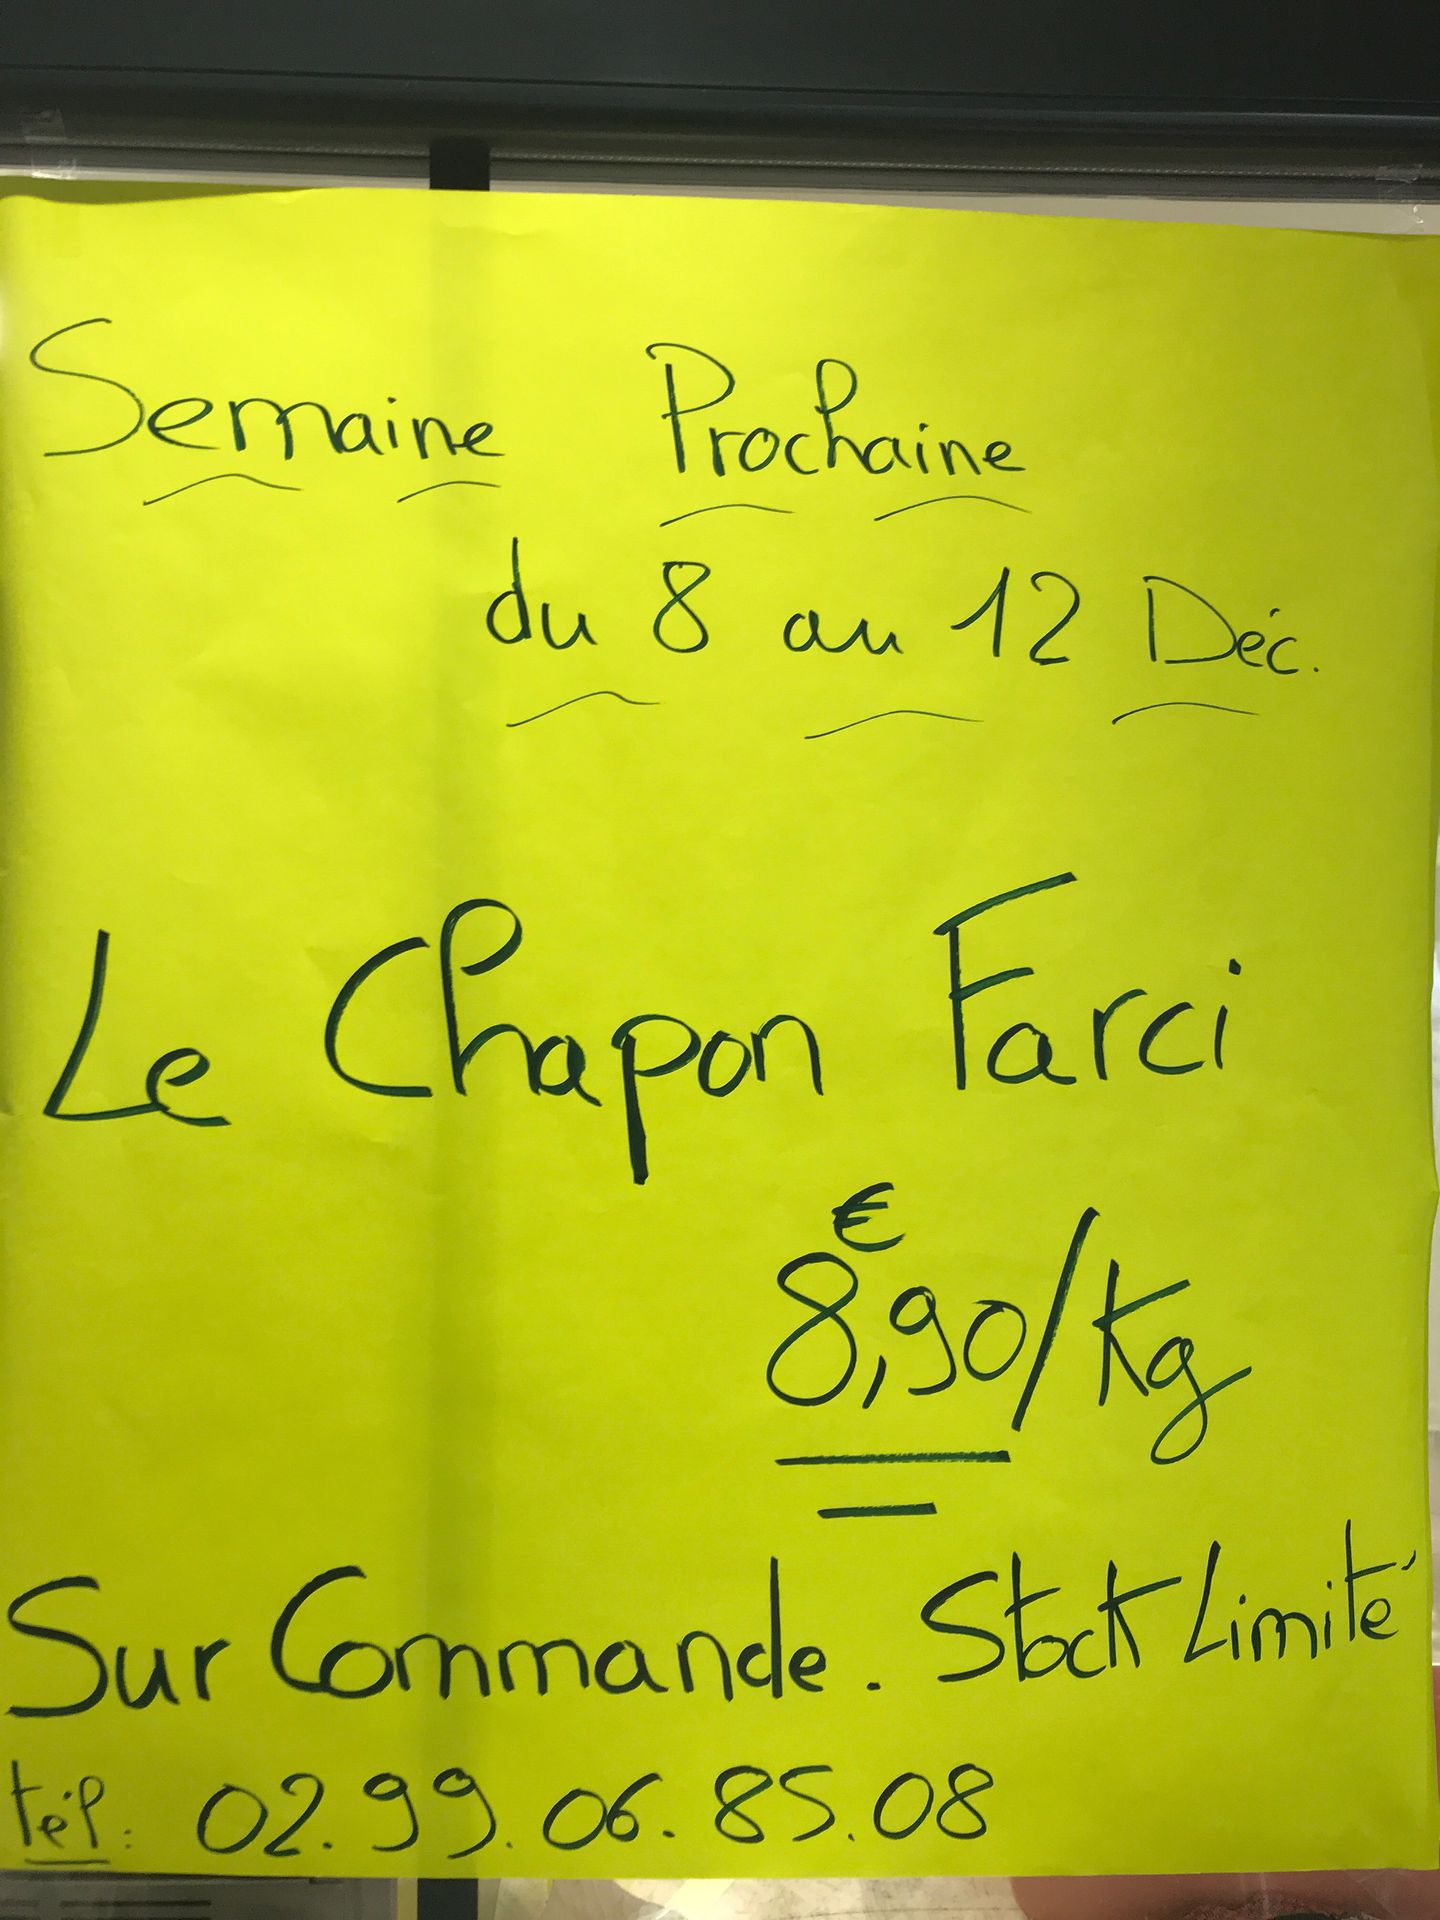 Semaine Prochaine
du 8 au 12 Déc.
Le Chapon Farci
€
8,90/Kg
Sur Commande. Stock Limité
tél: 02.99.06.85.08